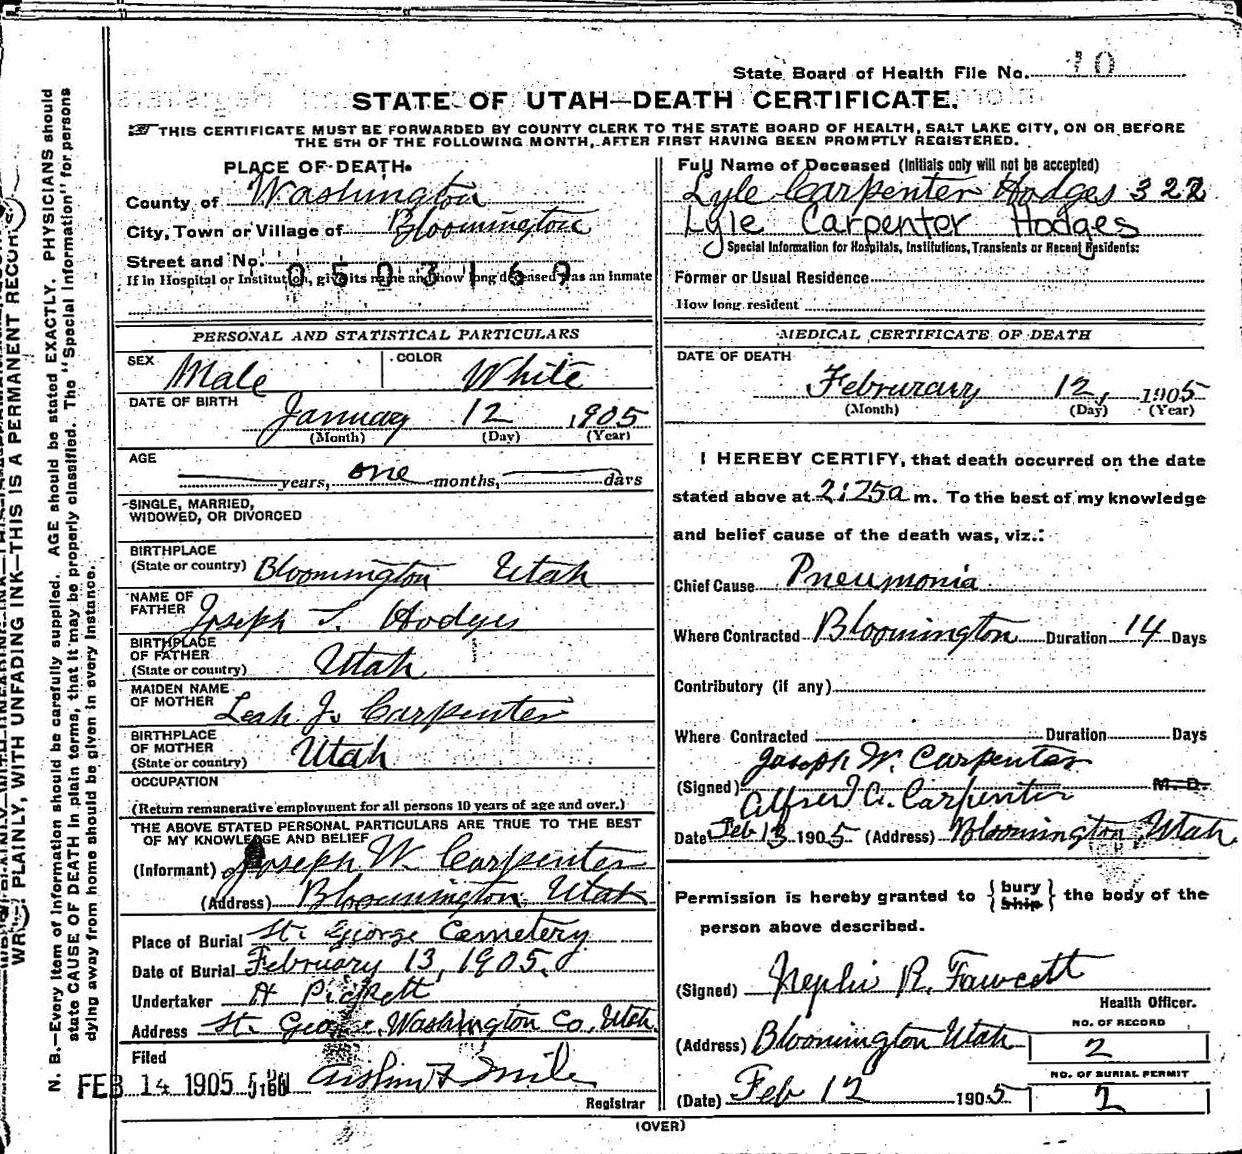 State Board of Health File No. 10
STATE OF UTAH—DEATH CERTIFICATE.
THIS CERTIFICATE MUST BE FORWARDED BY COUNTY CLERK TO THE STATE BOARD OF HEALTH, SALT LAKE CITY, ON OR BEFORE
THE 5TH OF THE FOLLOWING MONTH, AFTER FIRST HAVING BEEN PROMPTLY REGISTERED.
PLACE OF DEATH.
County of Washington
City, Town or Village of Bloomington
Street and No.
0503169
If in Hospital or Institution, give its name and how long deceased was an inmate
PERSONAL AND STATISTICAL PARTICULARS
SEX Male COLOR White
DATE OF BIRTH January 12 1905
(Month) (Day) (Year)
AGE
years, one months, days
SINGLE, MARRIED,
WIDOWED, OR DIVORCED
BIRTHPLACE
(State or country) Bloomington Utah
NAME OF
FATHER Joseph S. Hodges
BIRTHPLACE
OF FATHER
(State or country) Utah
MAIDEN NAME
OF MOTHER Leah J. Carpenter
BIRTHPLACE
OF MOTHER
(State or country) Utah
OCCUPATION
(Return remunerative employment for all persons 10 years of age and over.)
THE ABOVE STATED PERSONAL PARTICULARS ARE TRUE TO THE BEST
OF MY KNOWLEDGE AND BELIEF
(Informant) Joseph W. Carpenter
(Address) Bloomington Utah
Place of Burial St. George Cemetery
Date of Burial February 13, 1905.
Undertaker A Pickett
Address St. George, Washington Co, Utah.
Filed
FEB 14 1905
Registrar
Full Name of Deceased (Initials only will not be accepted)
Lyle Carpenter Hodges 322
Lyle Carpenter Hodges
Special Information for Hospitals, Institutions, Transients or Recent Residents:
Former or Usual Residence
How long resident
MEDICAL CERTIFICATE OF DEATH
DATE OF DEATH
Februrary 12, 1905
(Month) (Day) (Year)
I HEREBY CERTIFY, that death occurred on the date
stated above at 2:25a m. To the best of my knowledge
and belief cause of the death was, viz.:
Chief Cause Pneumonia
Where Contracted Bloomington Duration 14 Days
Contributory (if any)
Where Contracted Duration Days
Joseph W. Carpenter
(Signed) M. D.
Alfred G. Carpenter
Date Feb 13 1905 (Address) Bloomington, Utah
Permission is hereby granted to {bury ship} the body of the
person above described.
(Signed) Nephi R. Fawcett
Health Officer.
(Address) Bloomington Utah
NO. OF RECORD
2
(Date) Feb 12 1905
NO. OF BURIAL PERMIT
2
(OVER)
WRITE PLAINLY, WITH UNFADING INK—THIS IS A PERMANENT RECORD
N. B.—Every item of information should be carefully supplied. AGE should be stated EXACTLY. PHYSICIANS should
state CAUSE OF DEATH in plain terms, that it may be properly classified. The "Special Information" for persons
dying away from home should be given in every instance.